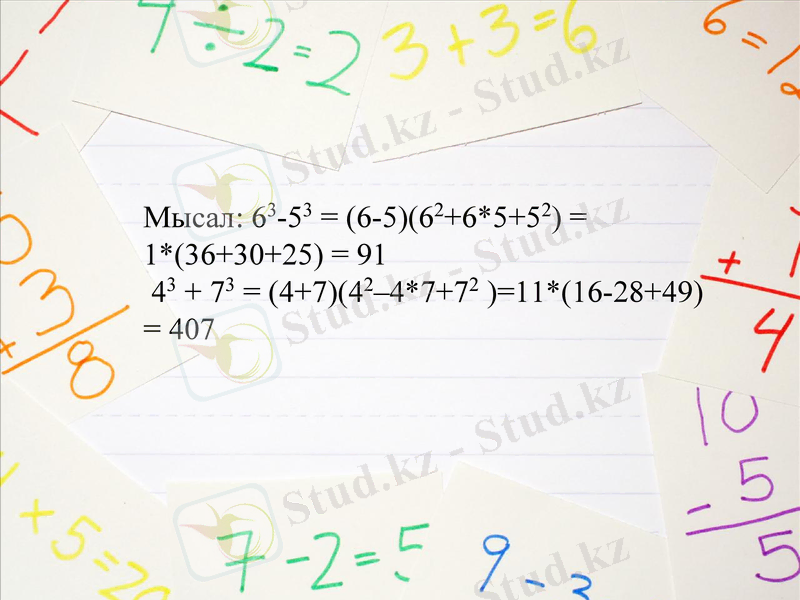 7÷2=2
3+3=6
6=12
Stud.kz - Stud.kz
Мысал: 6³-5³ = (6-5)(6²+6*5+5²) =
1*(36+30+25) = 91
4³ + 7³ = (4+7)(4²–4*7+7² )=11*(16-28+49)
= 407
Stud.kz - Stud.kz
Stud.kz - Stud.kz
Stud.kz - Stud.kz
Stud.kz - Stud.kz
3
+
8
+
4
10
- 5
5
+5=20
7-2=5
9-3